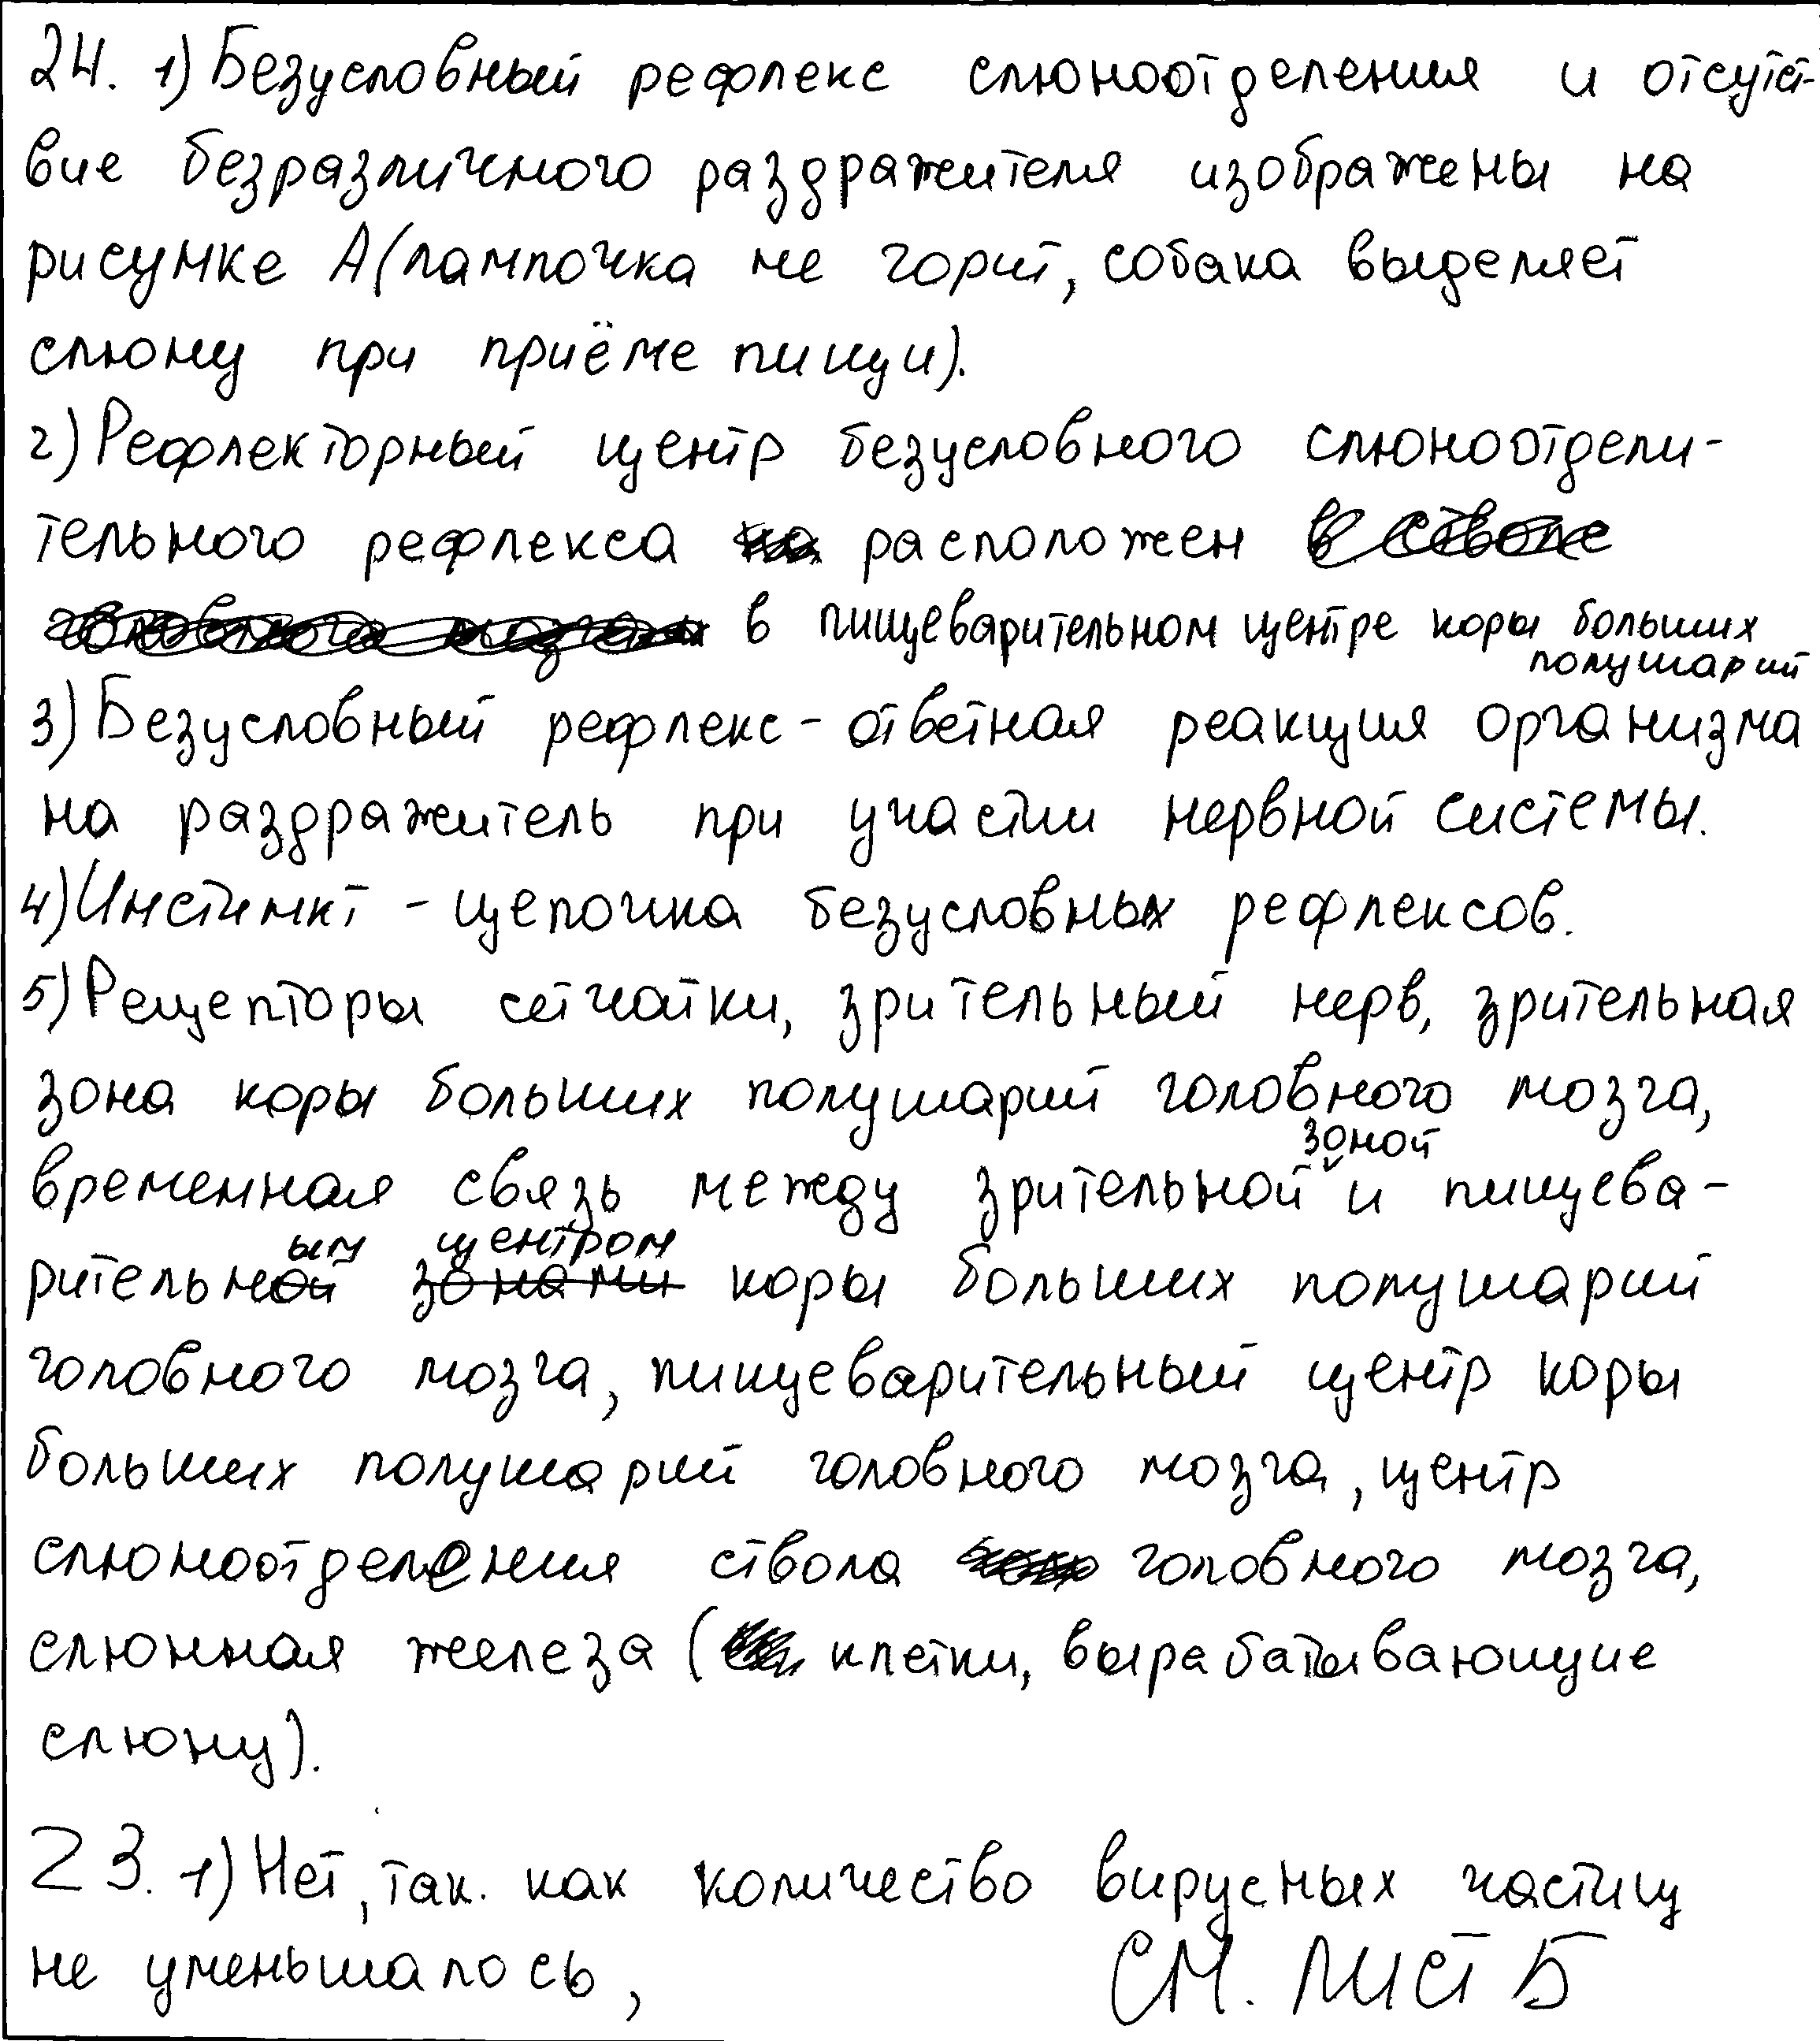 24. 1) Безусловный рефлекс слюноотделения и отсутст-
вие безразличного раздражителя изображены на
рисунке А (лампочка не горит, собака выделяет
слюну при приёме пищи).
2) Рефлекторный центр безусловного слюноотдели-
тельного рефлекса на расположен в стволе
головного мозга в пищеварительном центре коры больших
полушарий
3) Безусловный рефлекс - ответная реакция организма
на раздражитель при участии нервной системы.
4) Инстинкт - цепочка безусловных рефлексов.
5) Рецепторы сетчатки, зрительный нерв, зрительная
зона коры больших полушарий головного мозга,
зоной
временная связь между зрительной и пищева-
ым центром
рительной зонами коры больших полушарий
головного мозга, пищеварительный центр коры
больших полушарий головного мозга, центр
слюноотделения ствола головного мозга,
слюнная железа (клетки, вырабатывающие
слюну).
23. 1) Нет, так. как количество вирусных частиц
не уменьшалось, СМ. ЛИСТ Б